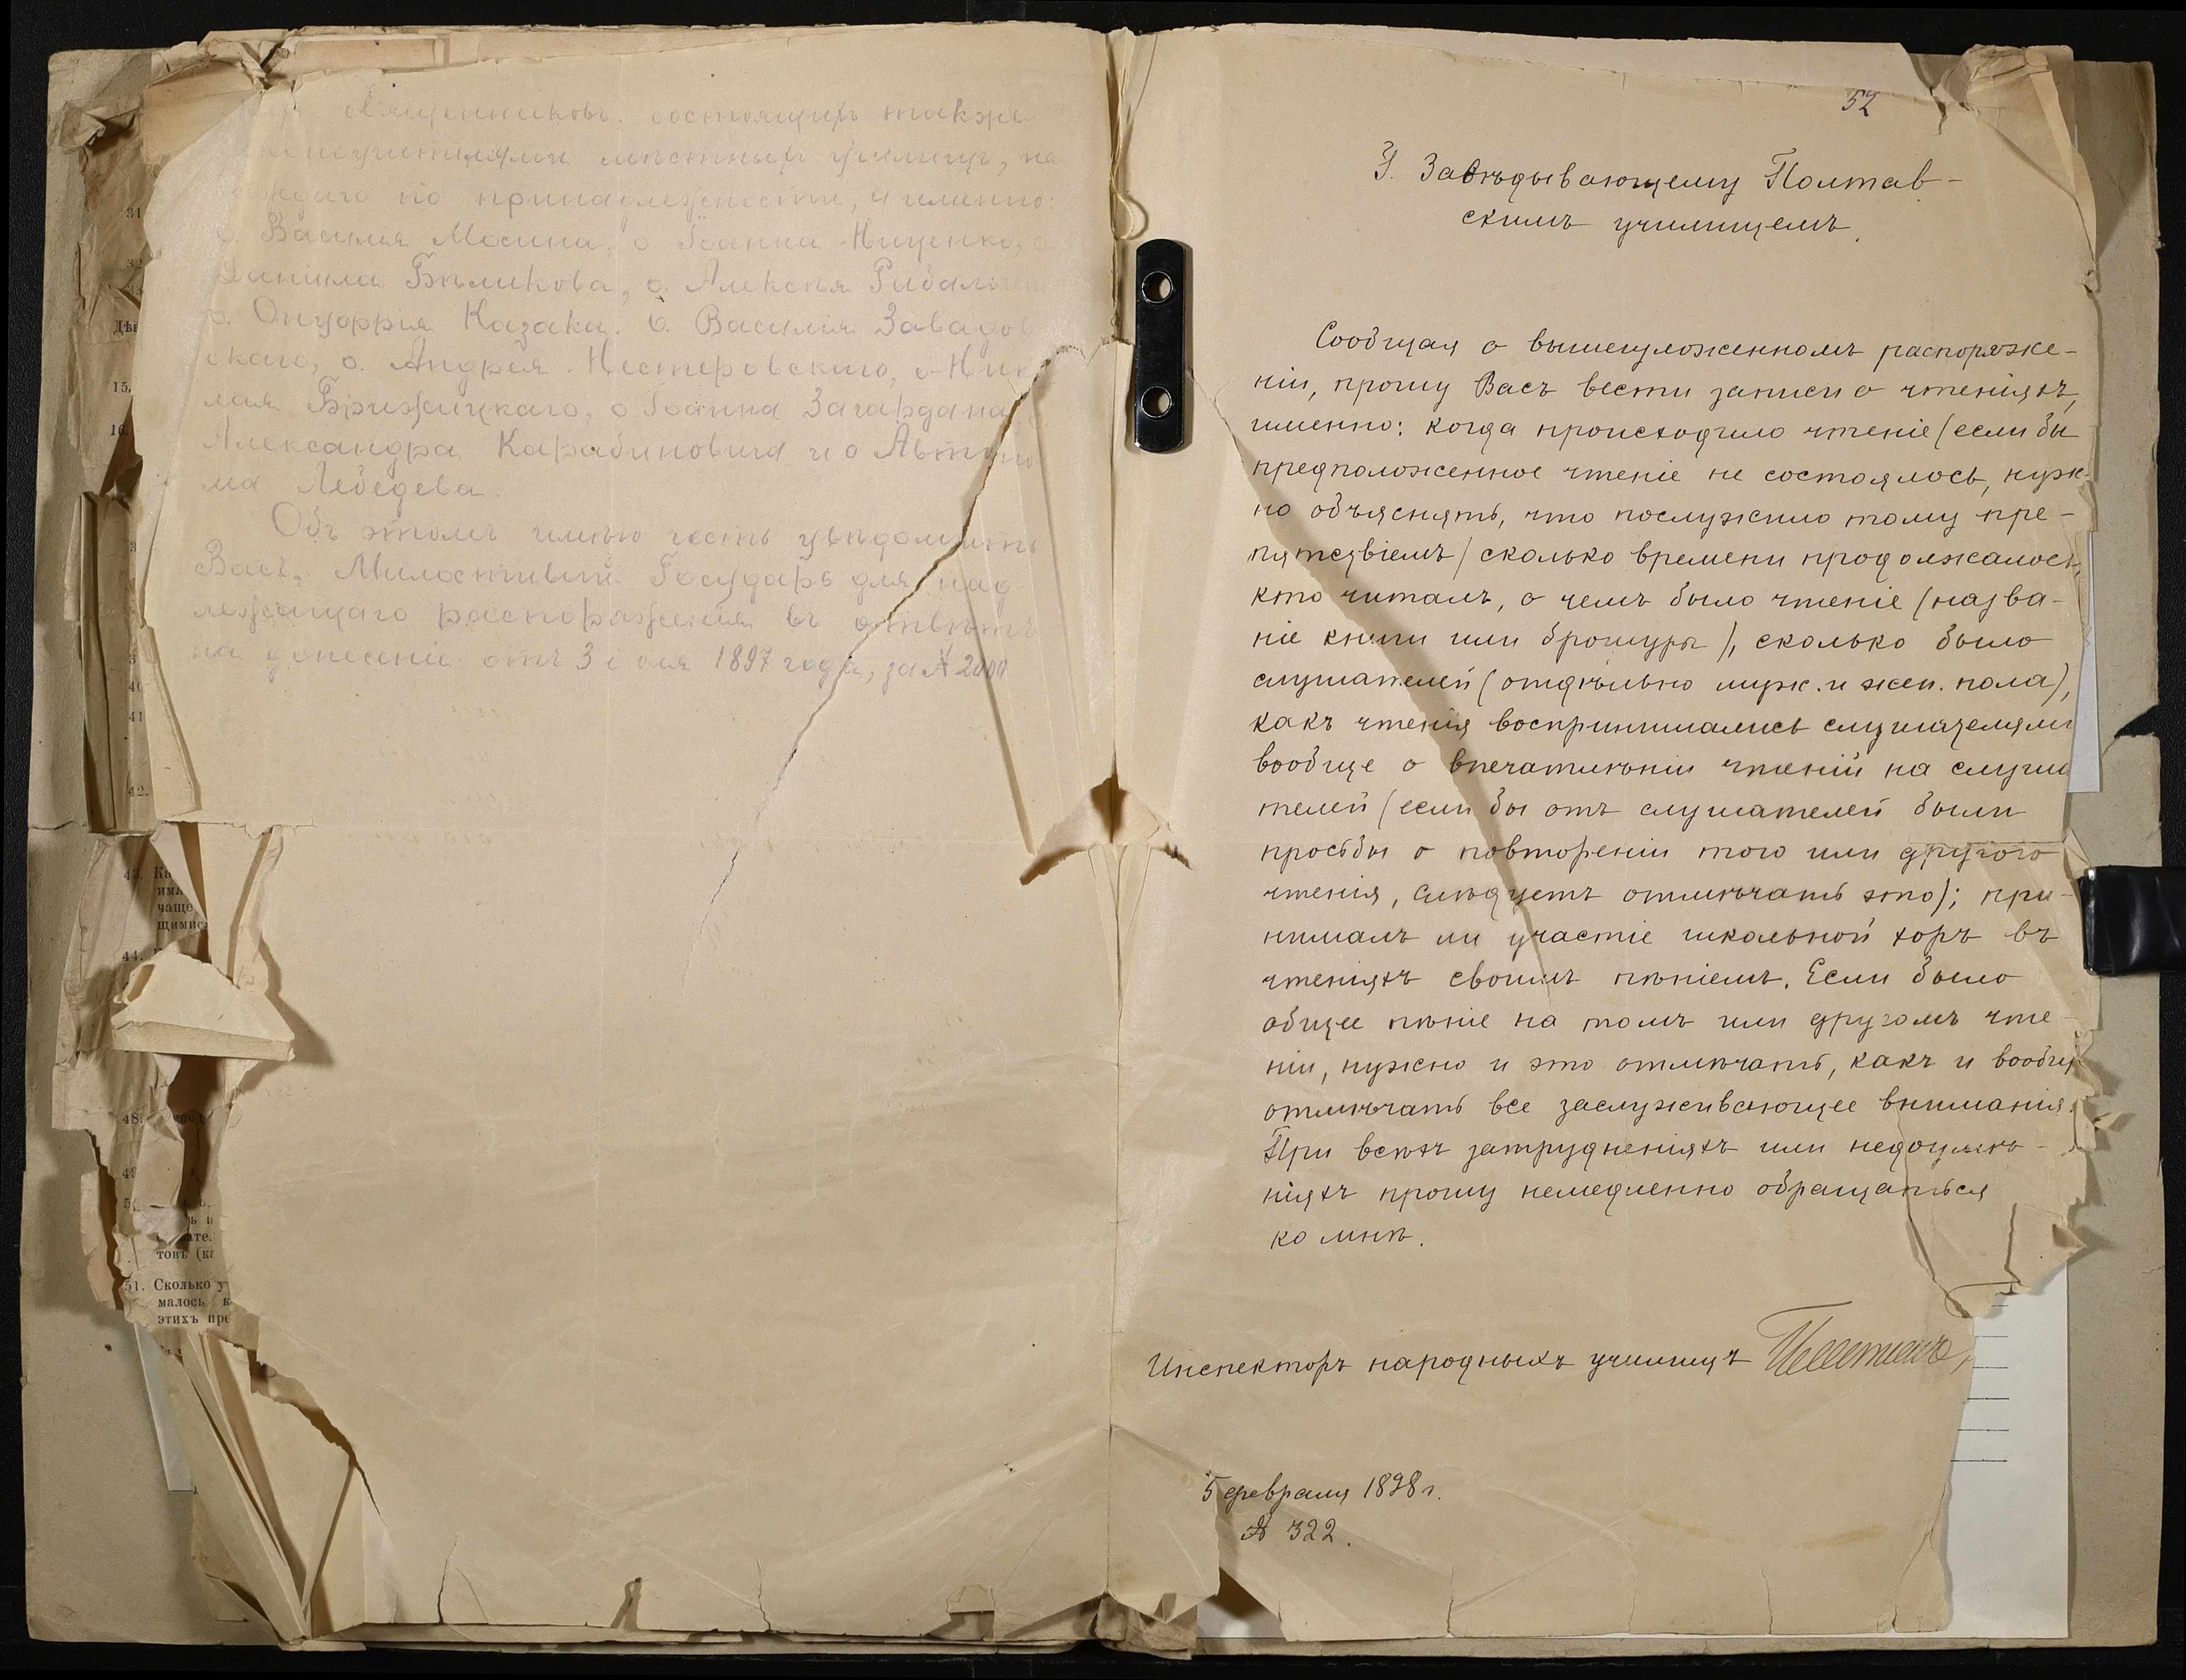 Священниковъ, состоящихъ также
законоучителями мѣстныхъ училищъ, на
каждаго по принадлежности, именно:
о. Василія Мосина, о. Іоанна Нищенко, о
Даніила Бѣликова, о. Алексѣя
о. Онуфрія Казака, о. Василія Завадов
скаго, о. Андрея Нестеровскаго, о. Ник
лая Брижицкаго, о Іоанна Загардана
Александра Карабиновича и о
ма Лебедева.
Объ этомъ имѣю честь увѣдомить
Васъ, Милостивый Государь для над
лежащаго распоряженія въ отвѣтъ
на донесеніе отъ 3 іюля 1897 года, за №
31
Дѣ
15.
16.
41
42.
43. Ка
имѣ
чаще
щимис
44.
48.
тонъ (ка
51. Сколько у
малось к
этихъ пре
52
Г. Завѣдывающему Полтав-
скимъ училищемъ.
Сообщая о вышеизложенномъ распоряже-
ніи, прошу Васъ вести записи о чтеніяхъ,
именно: когда происходило чтеніе (если бы
предположенное чтеніе не состоялось, нуж-
но объяснять, что послужило тому пре-
пятствіемъ) сколько времени продолжалось,
кто читалъ, о чемъ было чтеніе (назва-
ніе книги или брошуры), сколько было
слушателей (отдѣльно муж. и жен. пола),
какъ чтенія воспринимались слушателями
вообще о впечатлѣніи чтеній на слуша
телей (если бы отъ слушателей были
просьбы о повтореніи того или другого
чтенія, слѣдуетъ отмѣчать это); при-
нималъ ли участіе школьной хоръ въ
чтеніяхъ своимъ пѣніемъ. Если было
общее пѣніе на томъ или другомъ чте-
ніи, нужно и это отмѣчать, какъ и вообще
отмѣчать все заслуживающее вниманія.
При всѣхъ затрудненіяхъ или недоумѣ-
ніяхъ прошу немедленно обращаться
ко мнѣ.
Инспекторъ народныхъ училищъ
5 февраля 1898 г.
№ 322.